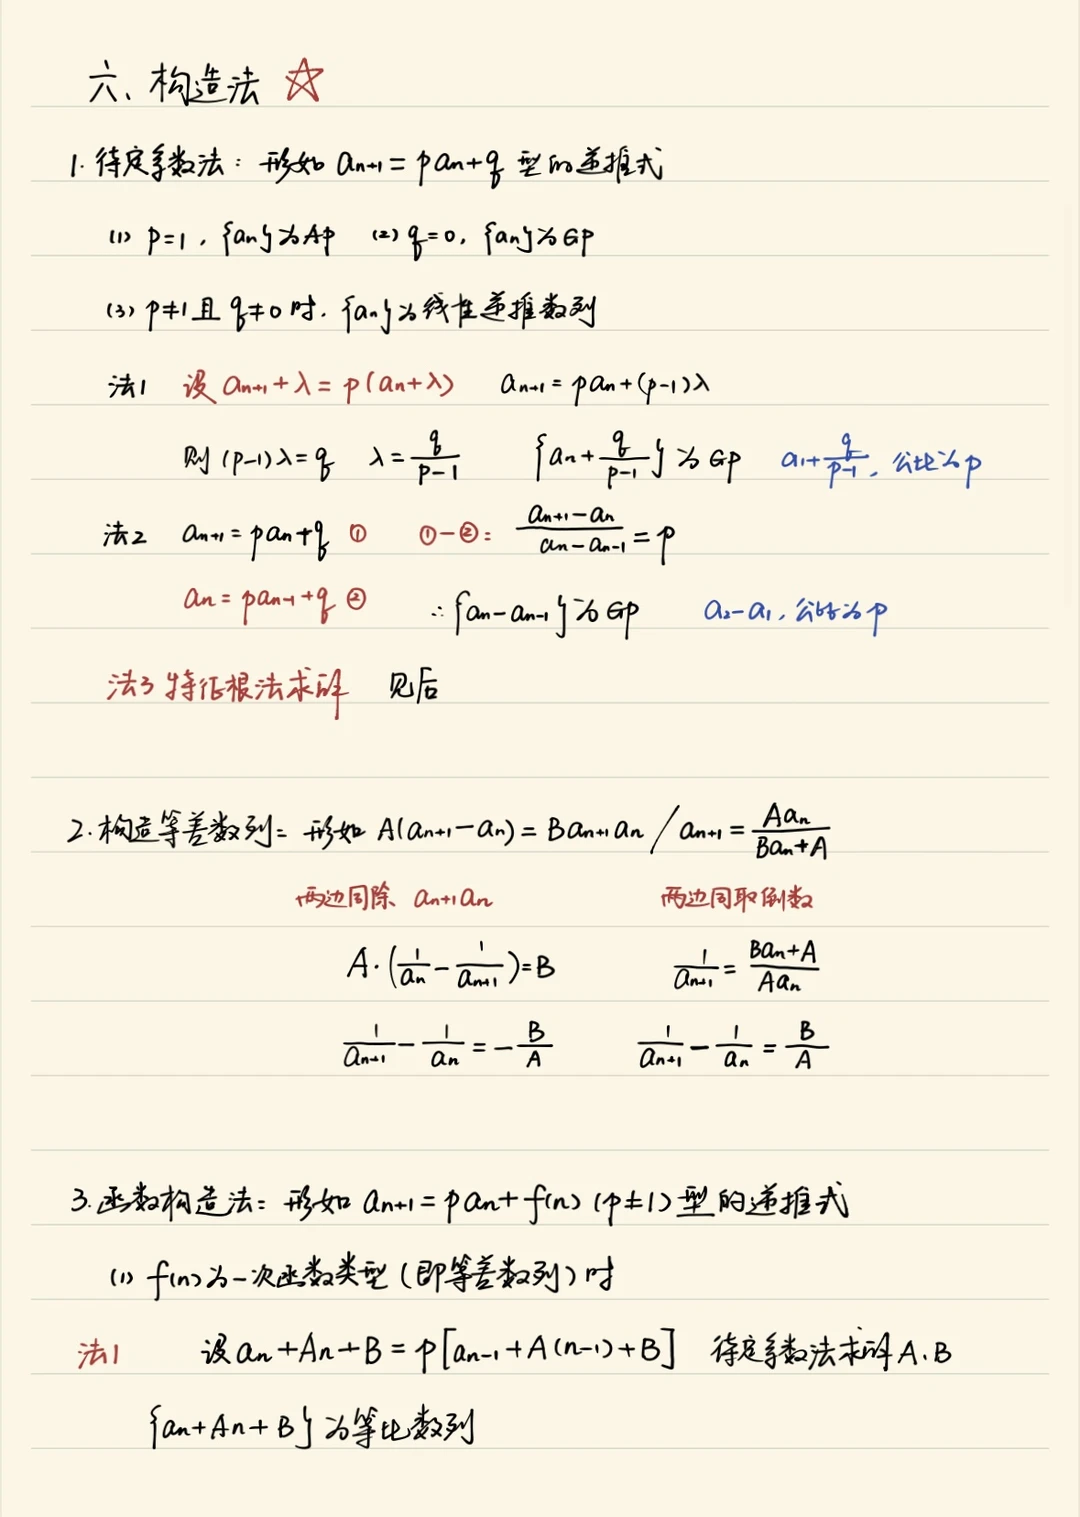 六、构造法 ☆
1. 待定系数法: 形如 aₙ₊₁ = paₙ + q 型的递推式
(1) p=1, {aₙ}为AP (2) q=0, {aₙ}为GP
(3) p≠1且 q≠0时, {aₙ}为线性递推数列
法1 设 aₙ₊₁+λ = p(aₙ+λ) aₙ₊₁ = paₙ+(p-1)λ
则 (p-1)λ=q λ=q/(p-1) {aₙ+q/(p-1)} 为GP a₁+q/(p-1), 公比为p
法2 aₙ₊₁ = paₙ+q ① ①-②: (aₙ₊₁-aₙ)/(aₙ-aₙ₋₁) = p
aₙ = paₙ₋₁+q ② ∴{aₙ-aₙ₋₁}为GP a₂-a₁, 公比为p
法3 特征根法求解 见后
2. 构造等差数列: 形如 A(aₙ₊₁-aₙ) = Baₙ₊₁aₙ / aₙ₊₁ = Aaₙ/(Baₙ+A)
两边同除 aₙ₊₁aₙ 两边同取倒数
A·(1/aₙ - 1/aₙ₊₁)=B 1/aₙ₊₁ = (Baₙ+A)/(Aaₙ)
1/aₙ₊₁ - 1/aₙ = -B/A 1/aₙ₊₁ - 1/aₙ = B/A
3. 函数构造法: 形如 aₙ₊₁ = paₙ + f(n) (p≠1) 型的递推式
(1) f(n)为一次函数类型(即等差数列)时
法1 设 aₙ+An+B = p[aₙ₋₁+A(n-1)+B] 待定系数法求解A、B
{aₙ+An+B}为等比数列